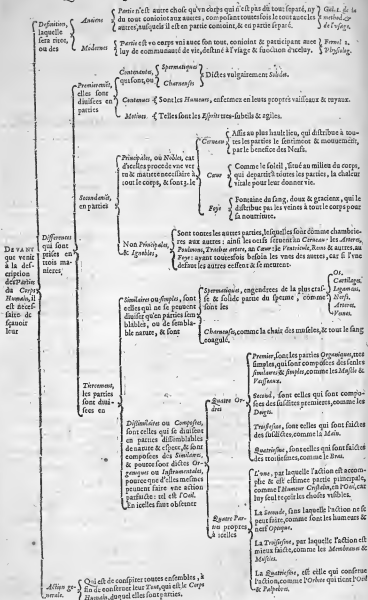 DEVANT
que venir
à la des-
cription
des Parties
du Corps
Humain, il
est neces-
saire de
sçavoir leur
Definition,
laquelle
sera tirée,
ou des
Anciens
Partie n'est autre chose qu'vn corps qui n'est pas du tout separé, ny
du tout conioint aux autres, composant toutesfois le tout auec les
autres, ausquels il est en partie conioint, & en partie separé.
Modernes
Partie est vn corps vni auec son tout, conioint & participant auec
luy de communauté de vie, destiné à l'vsage & fonction d'iceluy.
Differences
qui sont
prises en
trois ma-
nieres
Premierement,
elles sont
diuisées en
parties
Contenantes,
qui sont, ou
Spermatiques
ou
Charneuses
Dictes vulgairement Solides.
Contenues
Sont les Humeurs, enfermees en leurs propres vaisseaux & tuyaux.
Motiues
Telles sont les Esprits tres-subtils & agiles.
Secondement,
en parties
Principales, ou Nobles, car
d'icelles procede vne ver-
tu & matiere necessaire à
tout le corps, & sont 3. le
Cerueau
Assis au plus haut lieu, qui distribue à tou-
tes les parties le sentiment & mouuement,
par le benefice des Nerfs.
Cœur
Comme le soleil, situé au milieu du corps,
qui depart à toutes les parties, la chaleur
vitale pour leur donner vie.
Foye
Fontaine du sang, doux & gracieux, qui le
distribue par les veines à tout le corps pour
sa nourriture.
Non Principales,
& Ignobles,
Sont toutes les autres parties, lesquelles sont comme chambrie-
res aux autres : ainsi les outils seruent au Cerueau : les Arteres,
Poulmons, Trachee artere, au Cœur : le Ventricule, Reins & autres, au
Foye : ayant toutesfois besoin les vnes des autres, car si l'vne
default les autres cessent & se meurent.
Tiercement,
les parties
sont diui-
sées en
Similaires ou simples, sont
celles qui ne se peuuent
diuiser qu'en parties sem-
blables, ou de sembla-
ble nature, & sont
Spermatiques, engendrees de la plus cras-
se & solide partie du sperme, comme
sont les
Os.
Cartilages
Ligamens
Nerfs.
Arteres.
Veines.
Charneuses, comme la chair des muscles, & tout le sang
coagulé.
Dissimilaires ou Composees,
sont celles qui se diuisent
en parties dissemblables
de nature & espece, & sont
composees des Similaires,
& pource sont dictes Or-
ganiques ou Instrumentales,
pource que d'elles mesmes
peuuent faire vne action
parfaicte : tel est l'Oeil.
En icelles faut obseruer
Quatre Or-
dres
Premier, sont les parties Organiques, tres
simples, qui sont composees des seules
similaires & simples, comme les Muscles &
Vaisseaux.
Second, sont celles qui sont compo-
sees des susdites premieres, comme les
Doigts.
Troisiesme, sont celles qui sont faictes
des susdictes, comme la Main.
Quatriesme, sont celles qui sont faictes
des troisiesmes, comme le Bras.
Quatre Par-
ties propres
à icelles
L'vne, par laquelle l'action est accom-
plie & est estimee partie principale,
comme l'Humeur Cristalin, en l'Oeil, car
luy seul reçoit les choses visibles.
La Seconde, sans laquelle l'action ne se
peut faire, comme sont les humeurs &
nerf Optique.
La Troisiesme, par laquelle l'action est
mieux faicte, comme les Membranes &
Muscles.
La Quatriesme, est celle qui conserue
l'action, comme l'Orbite qui tient l'Oeil
& Palpebres.
Action ge-
nerale.
Qui est de conspirer toutes ensembles, à
fin de conseruer leur Tout, qui est le Corps
Humain, duquel elles sont parties.